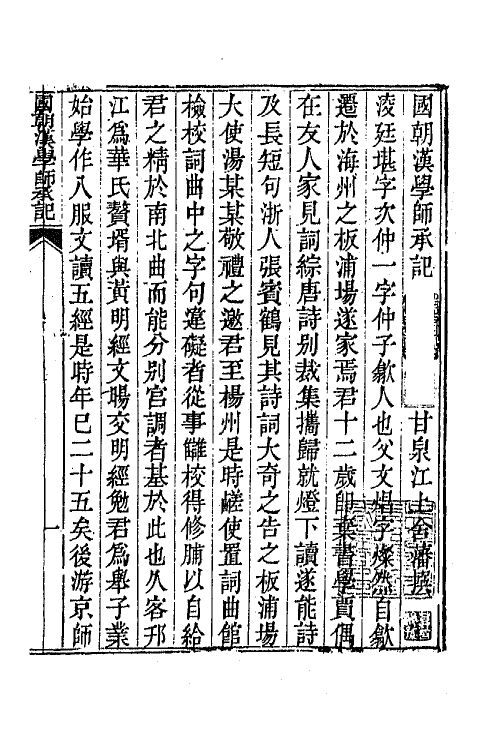 國朝漢學師承記
甘泉江上舍藩纂
凌廷堪字次仲一字仲子歙人也父文焻字燦然自歙
遷於海州之板浦場遂家焉君十二歲卽棄書學賈偶
在友人家見詞綜唐詩別裁集攜歸就燈下讀遂能詩
及長短句浙人張賓鶴見其詩詞大奇之告之板浦場
大使湯某某敬禮之邀君至楊州是時鹺使置詞曲館
檢校詞曲中之字句違礙者從事讎校得修脯以自給
君之精於南北曲而能分別宮調者基於此也久客邗
江爲華氏贅壻與黃明經文暘交明經勉君爲舉子業
始學作八服文讀五經是時年已二十五矣後游京師
國朝漢學師承記
一